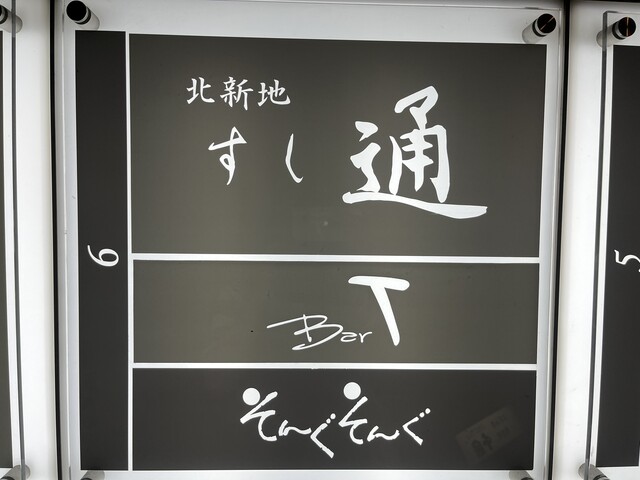 6
北新地
すし 通
Bar T
そんぐそんぐ
5